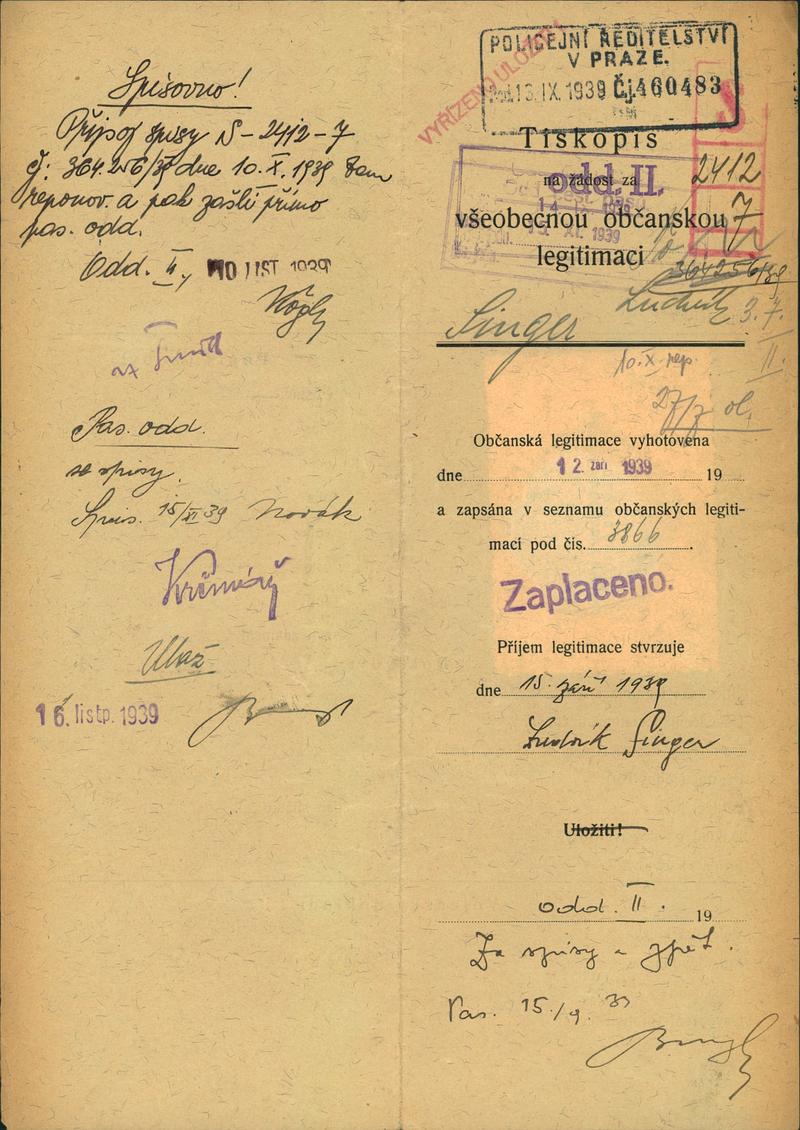 Spisovno!
Připoj spisy S-2412-7
čj: 364.256/39 dne 10. X. 1939 tam
reponov. a pak zašli přímo
pas. odd.
Odd. II,
10 LIST. 1939
Pas. odd.
se spisy.
Spis. 15/XI 39 Novák
Ulož
16. listp. 1939
VYŘÍZENO ULOŽIT
POLICEJNÍ ŘEDITELSTVÍ
V PRAZE.
13. IX. 1939 Čj. 460483
Tiskopis
na žádost za
odd. II.
2412
všeobecnou občanskou 7
legitimaci
364256/39
Singer Ludvík 3.7.
II.
10. X. rep.
Občanská legitimace vyhotovena
dne 12. září 1939 19
a zapsána v seznamu občanských legiti-
mací pod čís. 3866.
Zaplaceno.
Příjem legitimace stvrzuje
dne 15. září 1939
Ludvík Singer
Uložiti!
odd. II. 19
Za spisy a zpět.
Pas. 15./9. 39